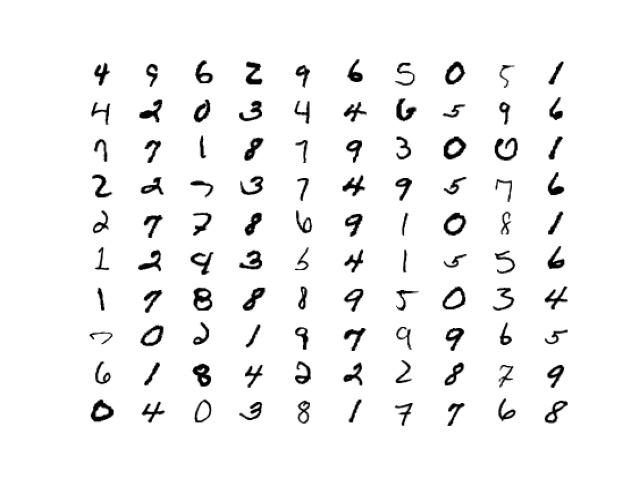 4 9 6 2 9 6 5 0 5 1
4 2 0 3 4 4 6 5 9 6
7 7 1 8 7 9 3 0 0 1
2 2 7 3 7 4 9 5 7 6
2 7 7 8 6 9 1 0 8 1
1 2 9 3 5 4 1 5 5 6
1 7 8 8 8 9 5 0 3 4
7 0 2 1 9 7 9 9 6 5
6 1 8 4 2 2 2 8 7 9
0 4 0 3 8 1 7 7 6 8